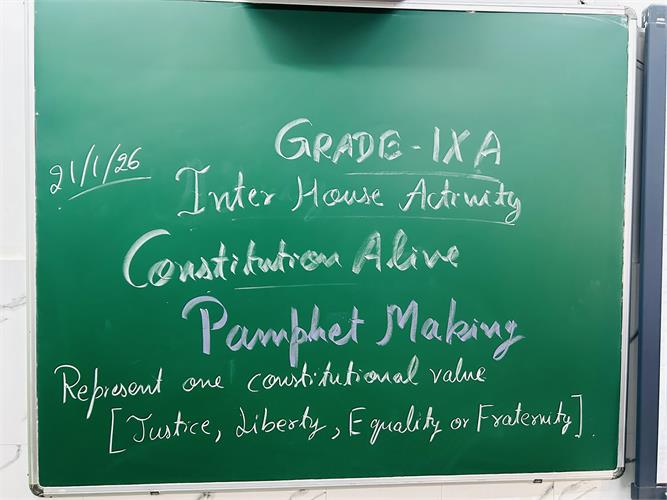 GRADE-IX A
21/1/26
Inter House Activity
Constitution Alive
Pamphet Making
Represent one constitutional value
[Justice, Liberty, Equality or Fraternity]